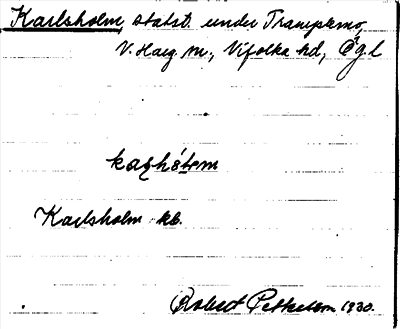 Karlsholm, statst. under Tramplemo,
V. Harg sn., Vifolka hd, Ögl
Karlsholm kb.
Robert Petterson 1930.